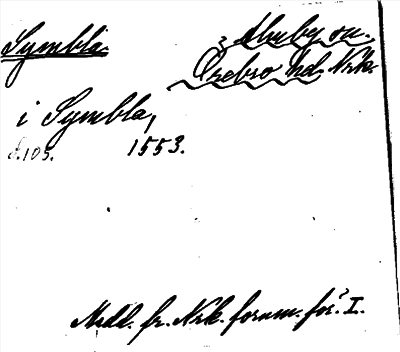 Symbla.
Almby sn.
Örebro hd. Nrk.
i Symbla,
s. 105. 1553.
Medd. fr. Nrk. fornm. för. I.